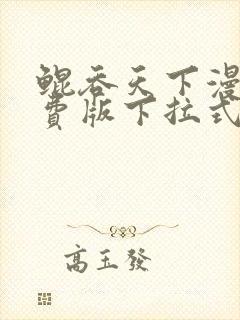 鲲吞天下漫
费版下拉式
高玉發